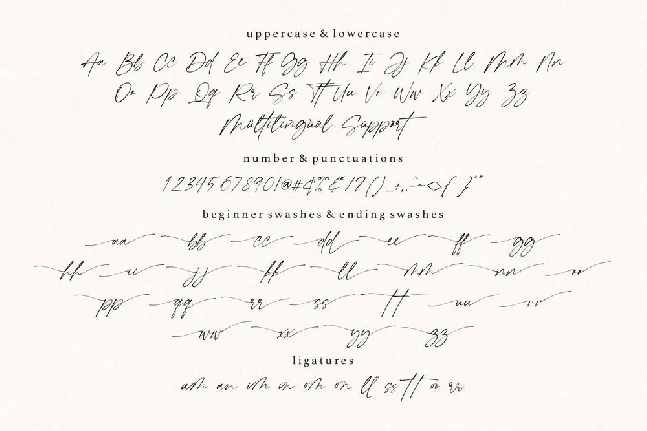 uppercase & lowercase
Aa Bb Cc Dd Ee Ff Gg Hh Ii Jj Kk Ll Mm Nn
Oo Pp Qq Rr Ss Tt Uu Vv Ww Xx Yy Zz
Multilingual Support
number & punctuations
1234567890!@#$%&
beginner swashes & ending swashes
aa bb cc dd ee ff gg
hh ii jj kk ll mm nn oo
pp qq rr ss tt uu vv
ww xx yy zz
ligatures
am an em en om on ll ss tt or rr